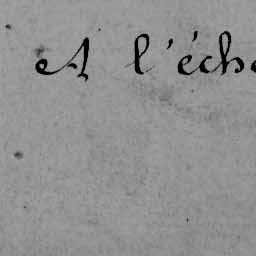 A l'éche